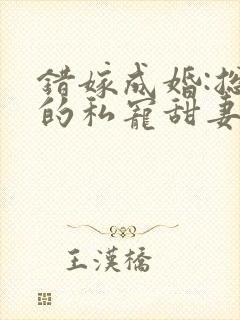 错嫁成婚:总
的私寵甜妻
王漢橋